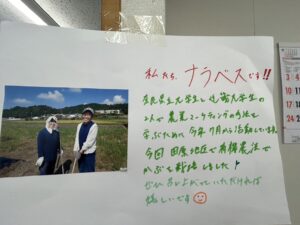 私たち、ナラベスです!!
奈良県立大学生と近畿大学生の
2人が農業マーケティングの手法を
学ぶため、今年7月から活動しています。
今回 田原地区で有機農法で
かぶを栽培しました♪
ぜひ お召し上がっていただければ
嬉しいです